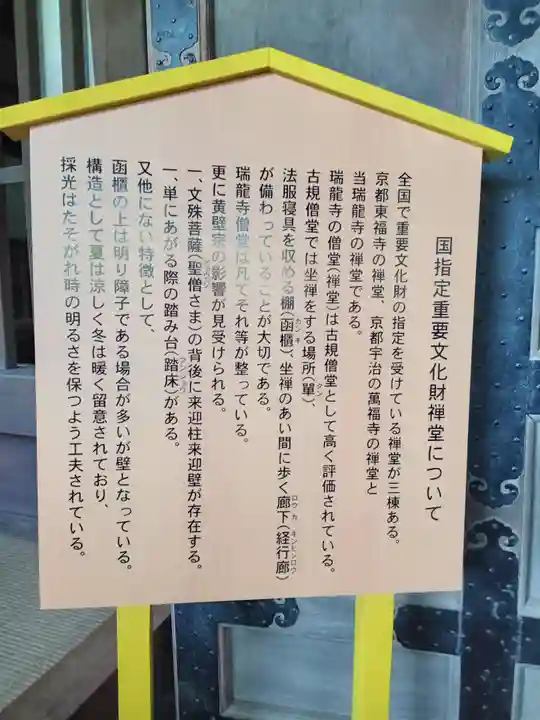 国指定重要文化財禅堂について
全国で重要文化財の指定を受けている禅堂が三棟ある。
京都東福寺の禅堂、京都宇治の萬福寺の禅堂と
当瑞龍寺の禅堂である。
瑞龍寺の僧堂(禅堂)は古規僧堂として高く評価されている。
古規僧堂では坐禅をする場所(單)、
法服寝具を収める棚(函櫃)、坐禅のあい間に歩く廊下(経行廊)
が備わっていることが大切である。
瑞龍寺僧堂は凡てそれ等が整っている。
更に黄壁宗の影響が見受けられる。
一、文殊菩薩(聖僧さま)の背後に来迎柱来迎壁が存在する。
一、単にあがる際の踏み台(踏床)がある。
又他にない特徴として、
函櫃の上は明り障子である場合が多いが壁となっている。
構造として夏は涼しく冬は暖く留意されており、
採光はたそがれ時の明るさを保つよう工夫されている。